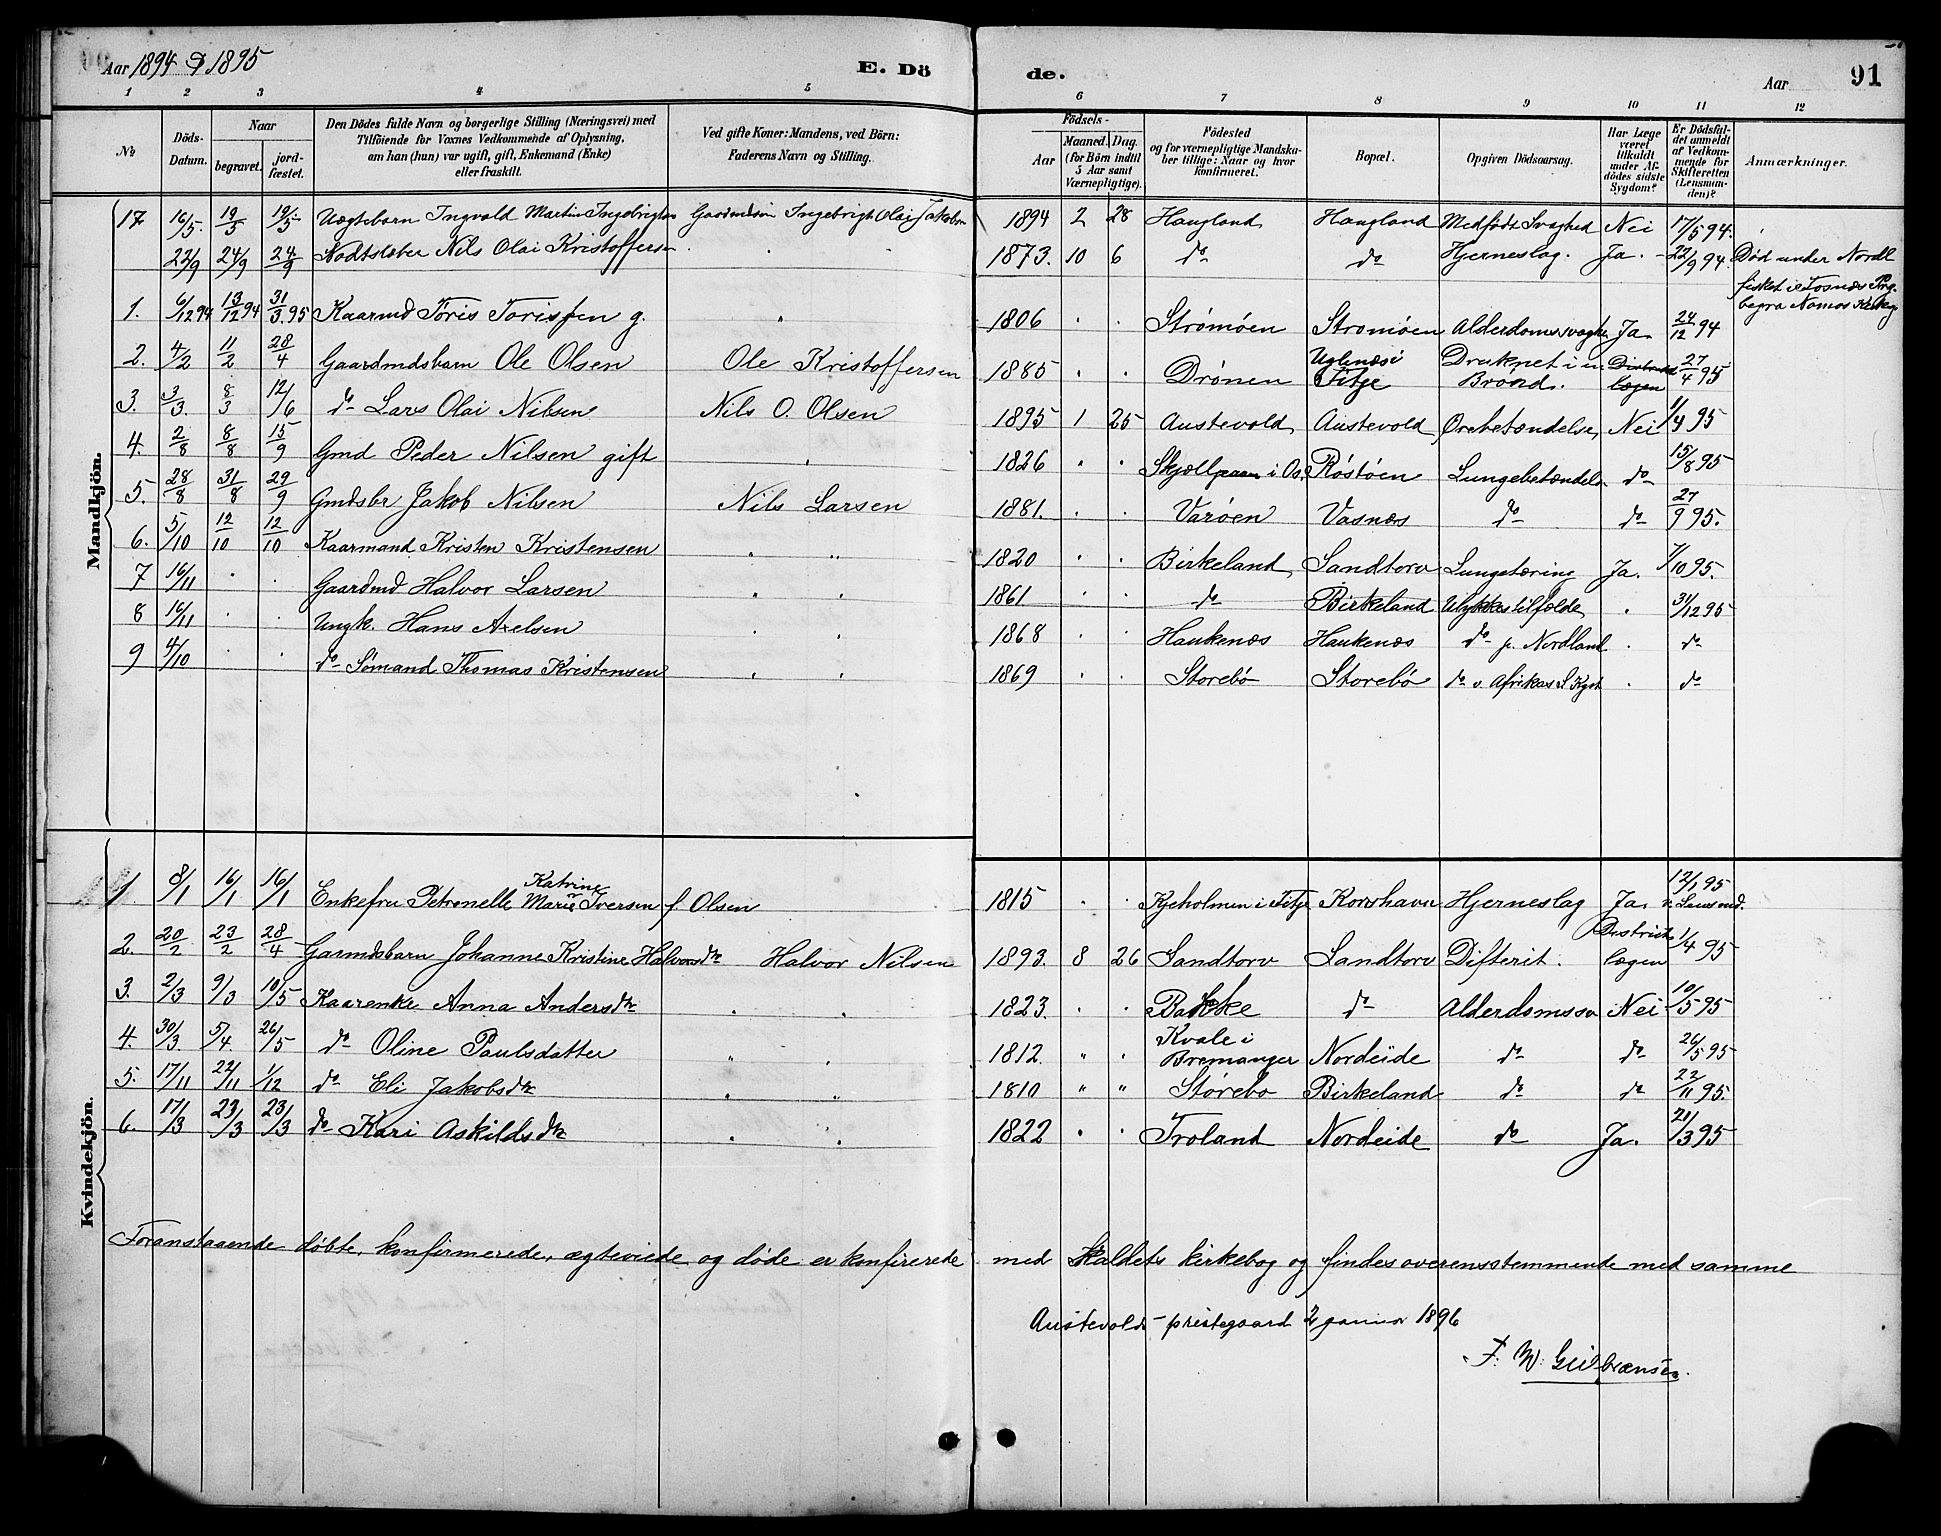 Aar 1894 & 1895 E. Dö de. Aar 91
1 2 3 4 5 6 7 8 9 10 11 12
No Döds-Datum. Naar begravet. jord-fæstet. Den Dödes fulde Navn og borgerlige Stilling (Næringsvei) med Tilföiende for Voxnes Vedkommende af Oplysning, om han (hun) var ugift, gift, Enkemand (Enke) eller fraskilt. Ved gifte Koner: Mandens, ved Börn: Faderens Navn og Stilling. Födsels- Aar Maaned. Dag. (for Börn indtil 5 Aar samt Værnepligtige). Födested og for værnepligtige Mandskaber tillige: Naar og hvor konfirmeret. Bopæl. Opgiven Dödsaarsag. Har Læge været tilkaldt under Afdödes sidste Sygdom? Er Dödsfaldet anmeldt af Vedkommende for Skifteretten (Lensmanden)? Anmærkninger.
Mandkjön.
17 16/5 19/5 19/5 Uægtebarn Ingvald Martin Ingebrigtsen Gaardmdsön Ingebrigt Olai Jakobsen 1894 2 28 Haugland Haugland Medfødt Svaghed Nei 17/5 94.
22/9 24/9 24/9 Nils Olai Kristoffersen 1873. 10 6 do do Hjerneslag. Ja. 22/9 94. Död under Nordl
fisket i Fosnæs Prg.
1. 6/12 94 13/12 94 31/3 95 Kaarmd Töris Torissen g. " 1806 Strømöen Strømöen Alderdomssvaghe Ja. 24/12 94
2. 4/2 11/2 28/4 Gaardmdsbarn Ole Olsen Ole Kristoffersen 1885 Drönen Uglenæs i Fitje Druknet i en Brønd. Distrikts lægen 27/4 95
3. 3/3. 8/3 12/6 do Lars Olai Nilsen Nils O. Olsen 1895 1 25 Austevold Austevold Ørebetændelse Nei 1/4 95
4. 2/8 8/8 15/9 Gmd Peder Nilsen gift " 1826 i Os. Röstöen Lungebetændelse do 15/8 95
5. 28/8 31/8 29/9 Gmdsbr Jakob Nilsen Nils Larsen 1881. Varöen Vasnæs do do 27/9 95.
6. 5/10 12/10 12/10 Kaarmand Kristen Kristensen " " 1820 Birkeland Sandtorv Lungetæring Ja. 7/10 95.
7 16/11 Gaardmd Halvor Larsen " " 1861 do Birkeland Ulykkestilfælde 31/12 95
8 16/11 Ungk. Hans Axelsen 1868 Haukenæs Haukenæs do p. Nordland do
9 4/10 do Sömand Thomas Kristensen 1869 Storebö Storebö do v. Afrikas S Kyst do
Kvindekjön.
1. 8/1 16/1 16/1 Enkefru Petronelle Katrine Marie Iversen f. Olsen 1815 Kjeholmen i Fitje Korshavn Hjerneslag Ja. 12/1 95 v. Lensmd.
2. 20/2 23/2 28/4 Garmdsbarn Johanne Kristine Halvorsdtr Halvor Nilsen 1893. 8 26 Sandtorv Sandtorv Difterit. Distrikts lægen 1/4 95
3. 2/3 9/3 10/5 Kaarenke Anna Andersdtr 1823. Bakke do Alderdomssv Nei 10/5 95
4. 30/3. 5/4. 26/5 do Oline Paulsdatter " " 1812. " Kvale i Bremanger Nordeide do do 26/5 95
5. 17/11 22/11 1/12 do Eli Jakobsdtr " " 1810 " " Storebø Birkeland do do 22/11 95.
6. 17/3 23/3 23/3 do Kari Askildsdtr 1822 Troland Nordeide do Ja. 21/3 95
Foranstaaende døbte, konfirmerede, ægteviede og døde er konfirerede med Kaldets kirkebog og findes overensstemmende med samme
Austevolds prestegaard 2 januar 1896
F. W. Gulbransen.